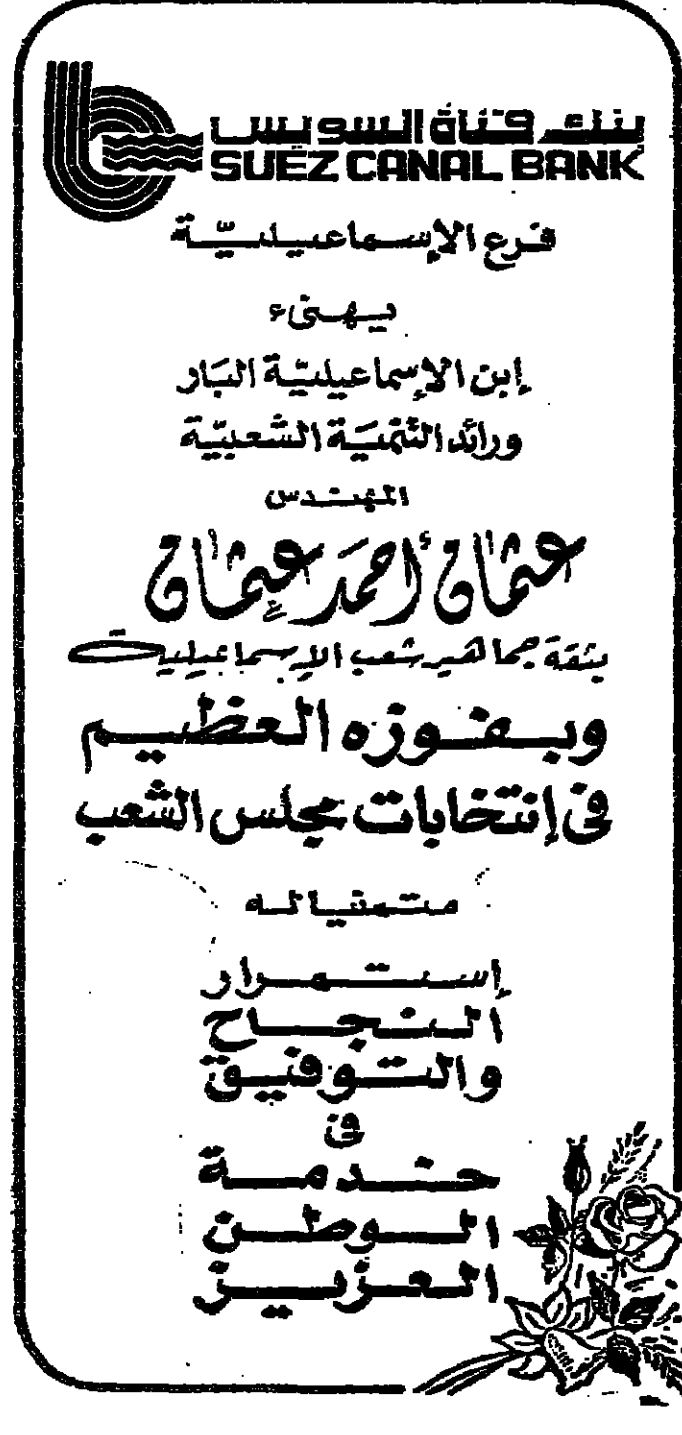 بنك قناة السويس
SUEZ CANAL BANK
فرع الإسماعيلية
يهنىء
إبن الإسماعيلية البار
ورائد التنمية الشعبية
المهندس
عثمان أحمد عثمان
بثقة جماهير شعب الإسماعيلية
وبفوزه العظيم
فى إنتخابات مجلس الشعب
متمنيا له
إستمرار
النجاح
والتوفيق
فى
خدمة
الوطن
العزيز